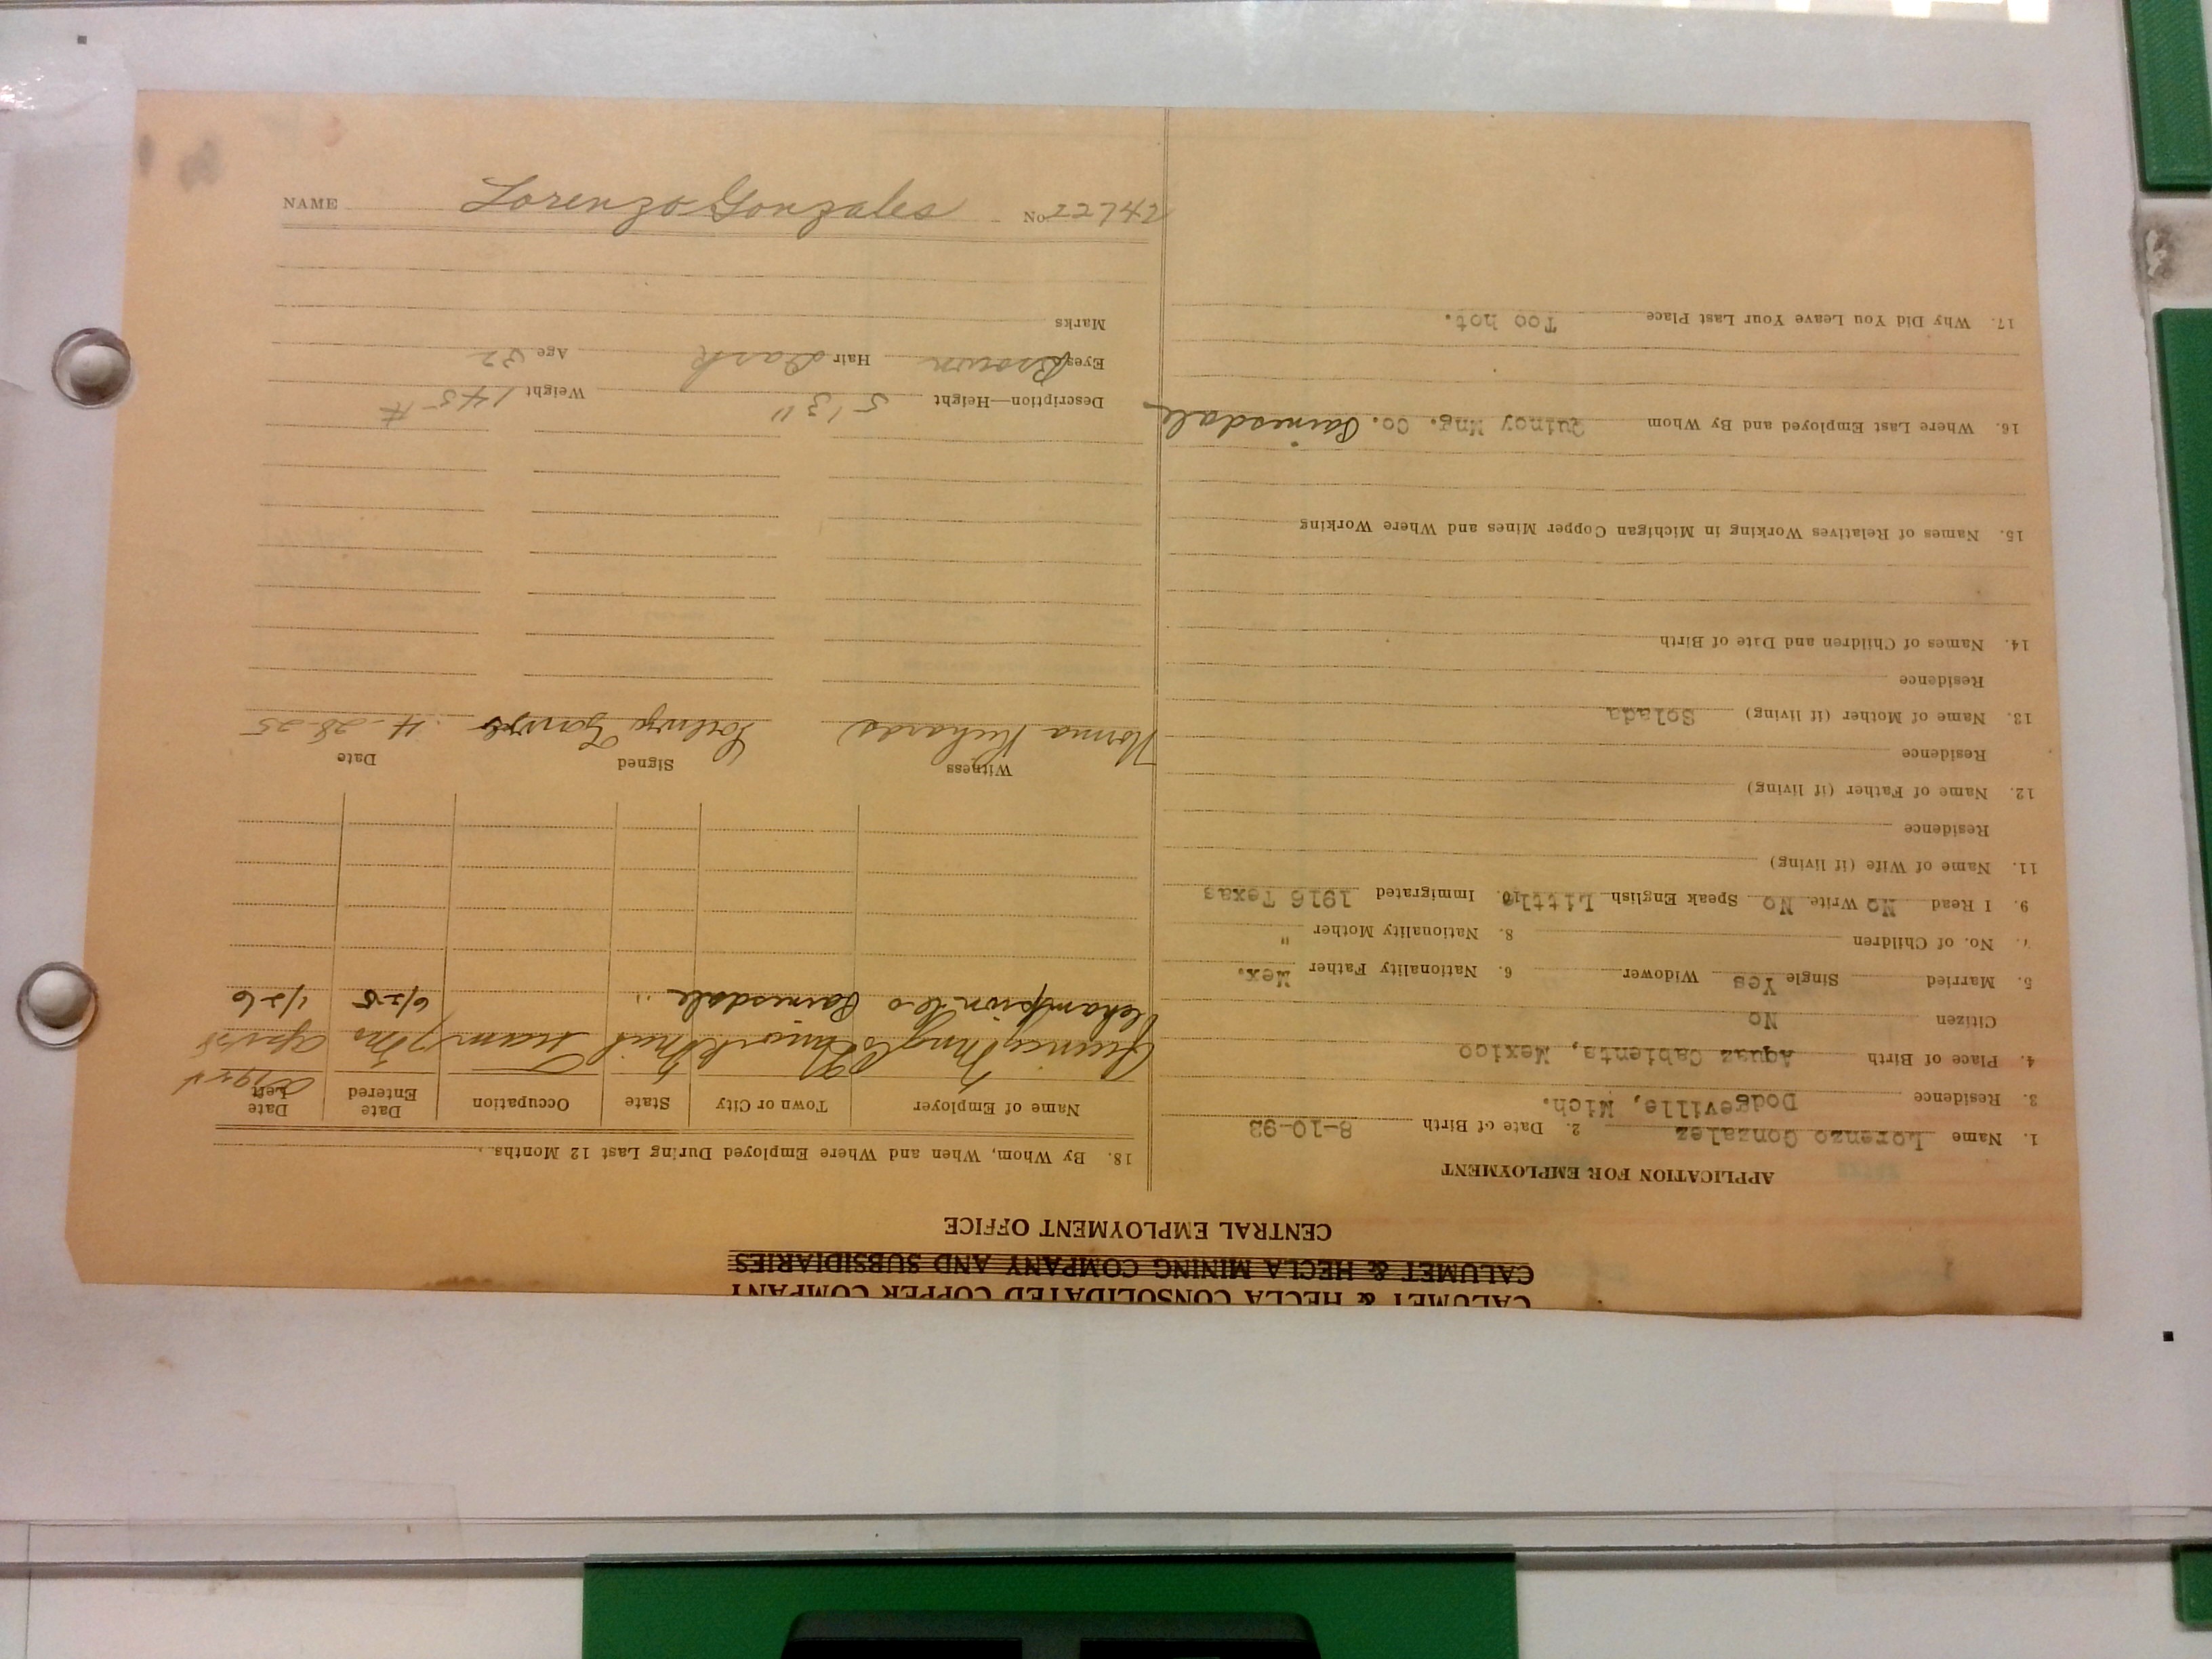 CALUMET & HECLA CONSOLIDATED COPPER COMPANY
CALUMET & HECLA MINING COMPANY AND SUBSIDIARIES
CENTRAL EMPLOYMENT OFFICE
APPLICATION FOR EMPLOYMENT
1. Name Lorenzo Gonzalez 2. Date of Birth 8-10-93
3. Residence Dodgeville, Mich.
4. Place of Birth Aquaz Cabienta, Mexico
Citizen No
5. Married Single Yes Widower 6. Nationality Father Mex.
7. No. of Children 8. Nationality Mother "
9. I Read No Write No Speak English Little 10. Immigrated 1916 Texas
11. Name of Wife (if living)
Residence
12. Name of Father (if living)
Residence
13. Name of Mother (if living) Solada
Residence
14. Names of Children and Date of Birth
15. Names of Relatives Working in Michigan Copper Mines and Where Working
16. Where Last Employed and By Whom Quincy Mng. Co. Painesdale
17. Why Did You Leave Your Last Place Too hot.
18. By Whom, When and Where Employed During Last 12 Months
Name of Employer Town or City State Occupation Date Entered Date Left
Quincy Mng Co Mich Tram 7 Mo
Champion Co Painesdale " 6/25 1/26
Witness Signed Date
Norma Richards 4-28-25
Description—Height 5' 3" Weight 145 #
Eyes Brown Hair Dark Age 32
Marks
NAME Lorenzo Gonzales No. 22742